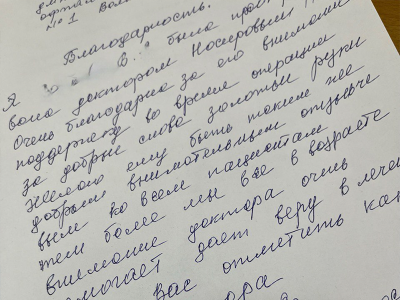 офтал
№1 Вол
Благодарность.
Я была про
вана доктором Носировым
Очень благодарна за его внимание
поддержку во время операции
за добрые слова золотые руки
Желаю ему быть таким же
добрым внимательным отзывчи
вым ко всем пациентам
тем более мы все в возрасте
внимание доктора очень
омогает даёт веру в лече
Вас отметить как
ора